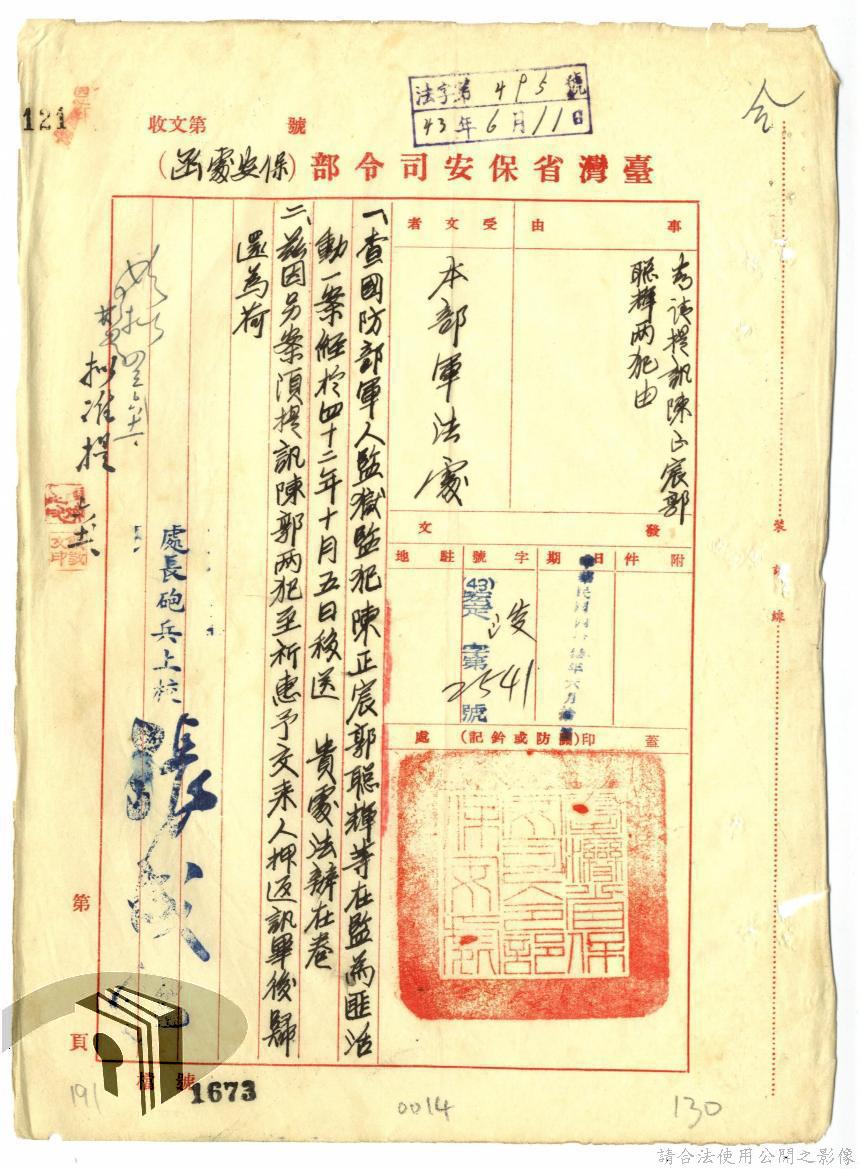 法字第495號
43年6月11日
121
收文第 號
臺灣省保安司令部(保安處函)
事由
為請提訊陳正宸郭
聰輝两犯由
受文者
本部軍法處
發文
附件
日期
字號
駐地
(43)
字第
2541
號
蓋印(關防或鈐記)處
一、查國防部軍人監獄監犯陳正宸郭聰輝等在監為匪活
動一案經於四十二年十月五日移送 貴處法辦在卷
二、茲因另案須提訊陳郭两犯至祈惠予交來人押返訊畢後歸
還為荷
處長砲兵上校
張
擬准提
第 頁
檔號
1673
裝訂線
191
0014
130
請合法使用公開之影像